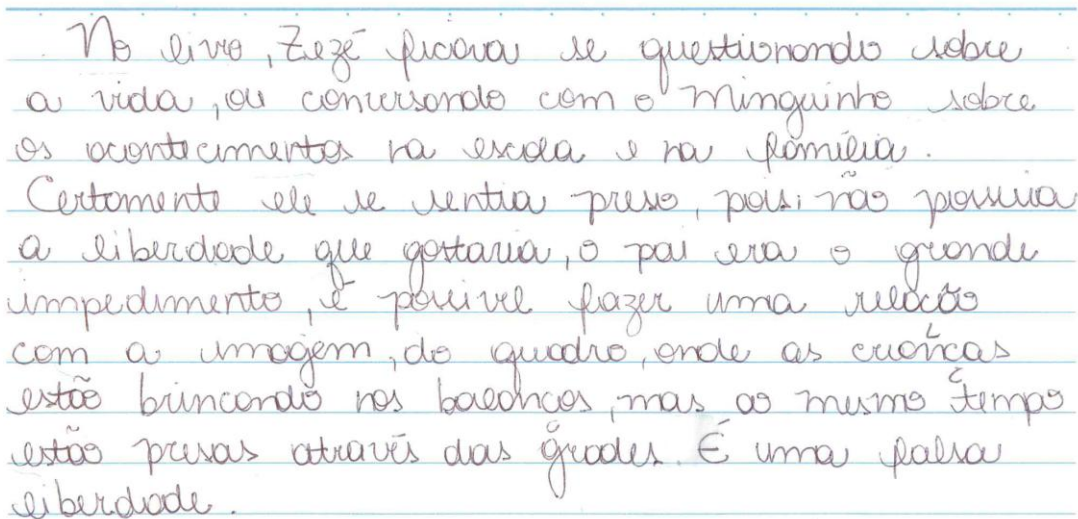 No livro, Zezé ficava se questionando sobre
a vida, ou conversando com o Minguinho sobre
os acontecimentos na escola e na família.
Certamente ele se sentia preso, pois; não possuia
a liberdade que gostaria, o pai era o grande
impedimento, é possivel fazer uma relação
com a imagem, do quadro, onde as crianças
estão brincando nos balanços, mas ao mesmo tempo
estão presas através das grades. É uma falsa
liberdade.